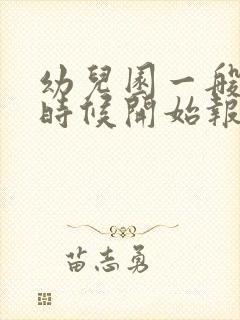 幼兒園一般
時候開始報
苗志勇